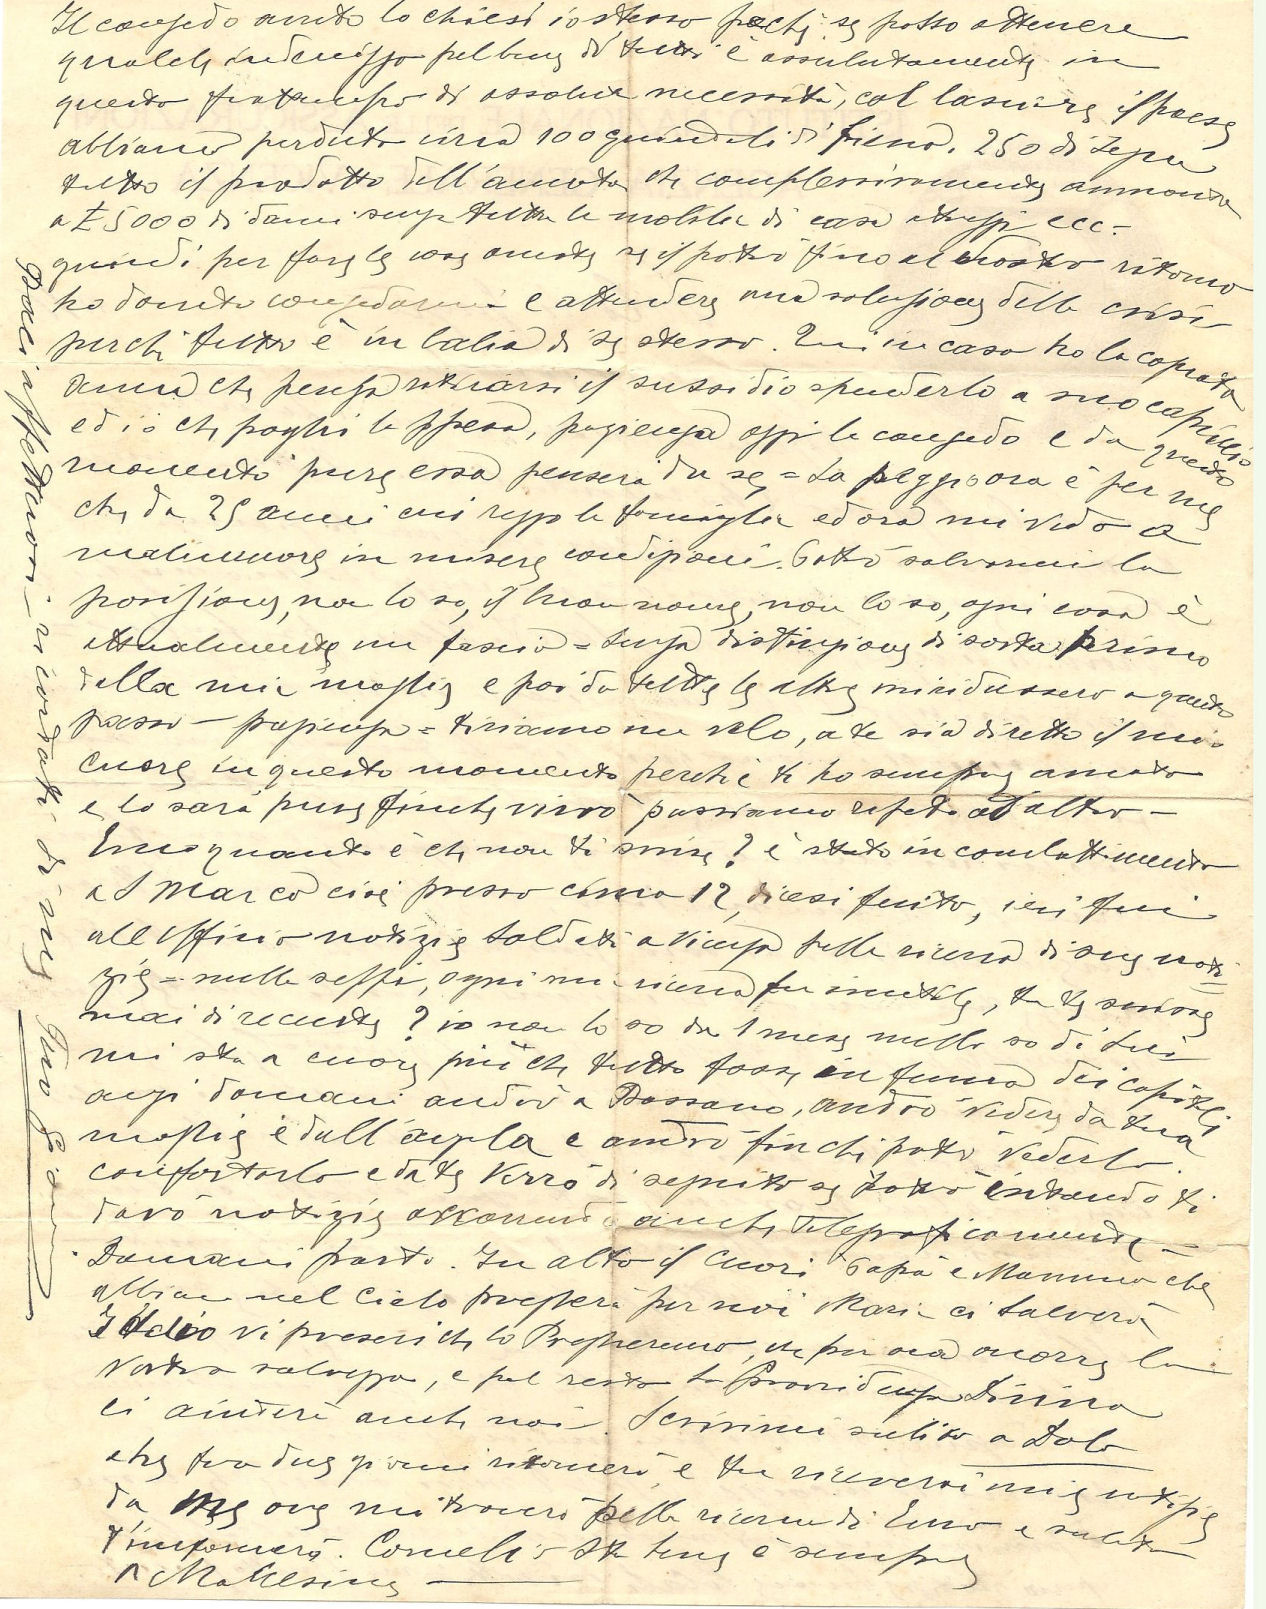 Il congedo avuto lo chiesi io stesso perché se posso ottenere
qualche indennizzo pel bene di tutti è assolutamente in
questo frattempo di assoluta necessità, col lasciare il paese
abbiamo perduto circa 100 quintali di fieno. 250 di legna
tutto il prodotto dell'annata che complessivamente ammonta
a £ 5000 di danni senza tutta la mobilia di casa attrezzi ecc.
quindi per fare le cose oneste se si potrà fino al nostro ritorno
ho dovuto congedarmi e attendere una soluzione della crisi
perché tutto è in balia di se stesso. Qui in casa ho la cognata
Anna che pensa ritirarsi il sussidio spenderlo a suo capriccio
ed io che paghi la spesa, pazienza oggi la congedo e da questo
momento pure essa penserà da se = La peggio ora è per me
che da 25 anni cui reggo la famiglia ed ora mi vedo a
malincuore in misere condizioni. Potrò salvarmi la
posizione, non lo so, il buon nome, non lo so, ogni cosa è
attualmente un fascio = senza distinzione di sorta primo
della mia moglie e poi da tutte le altre mi ridussero a questo
passo – pazienza = tiriamo un velo, a te sia diretto il mio
cuore in questo momento perché ti ho sempre amato
e lo sarà pure finché vivrò passiamo ad altro –
Eno quanto è che non ti scrive? è stato in combattimento
a S Marco cioè presso cima 12, dicesi ferito, ieri fui
all'Ufficio notizie Soldati a Vicenza sulla ricerca di sue noti
zie = nulla seppi, ogni mia ricerca fu inutile, tu te scrisse
mai di recente? io non lo so da 1 mese nulla so di lui
mi sta a cuore più che tutto fosse in fumo dei capitali
anzi domani andrò a Bassano, andrò vedere da tua
moglie e dall'Angela e andrò finché potrò vederlo
confortarlo e da te verrò di seguito se potrò intanto ti
darò notizie occorrendo anche telegraficamente –
Domani parto. In alto il Cuori Papà e Mamma che
abbiamo nel Cielo pregherà per noi Maria ci salverà
Iddio vi preservi che lo Pregheremo, che per ora occorre la
vostra salvezza, e pel resto la Provvidenza Divina
ci aiuterà anche noi. Scrivimi subito a Dolo
che fra due giorni ritornerò e tu riceverai mie notizie
da me ove mi troverò pella ricerca di Eno e subito
t'informerò. Cornelio sta bene è sempre
a Malcesine
Baci affettuosi ricordati di me Tuo